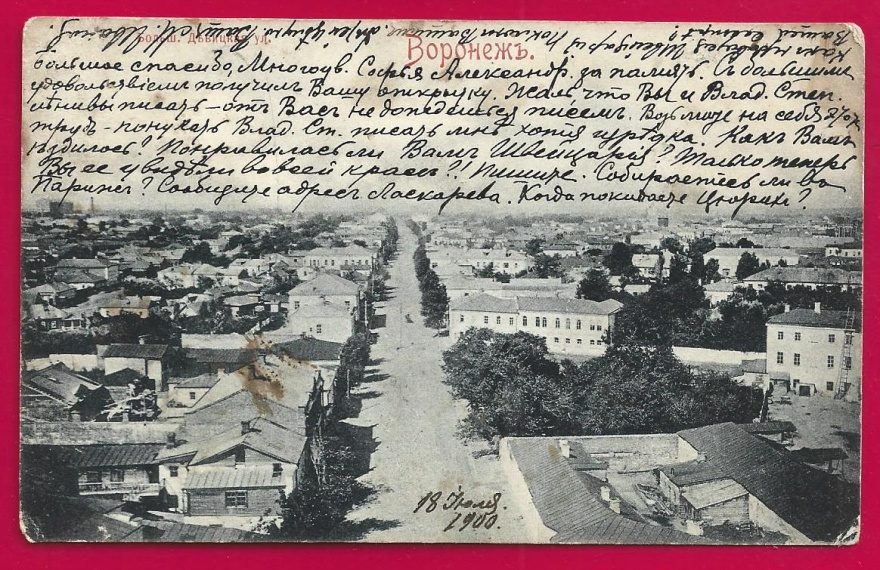 Больш. Дѣвицкая ул.
Воронежъ.
большое спасибо, Многоув. Софья Александр. за память. Съ большимъ
удовольствіемъ получилъ Вашу открытку. Жаль что Вы и Влад. Степ.
лѣнивы писать - отъ Васъ не дождешься писемъ. Возьмите на себя этотъ
трудъ - понукать Влад. Ст. писать мнѣ хотя изрѣдка. Какъ Вамъ
ѣздилось? Понравилась ли Вамъ Швейцарія? Только теперь
Вы ее увидѣли во всей красѣ? Пишите. Собираетесь ли въ
Парижъ? Сообщите адресъ Ласкарева. Когда покидаете Цюрихъ?
18 Іюля.
1900.